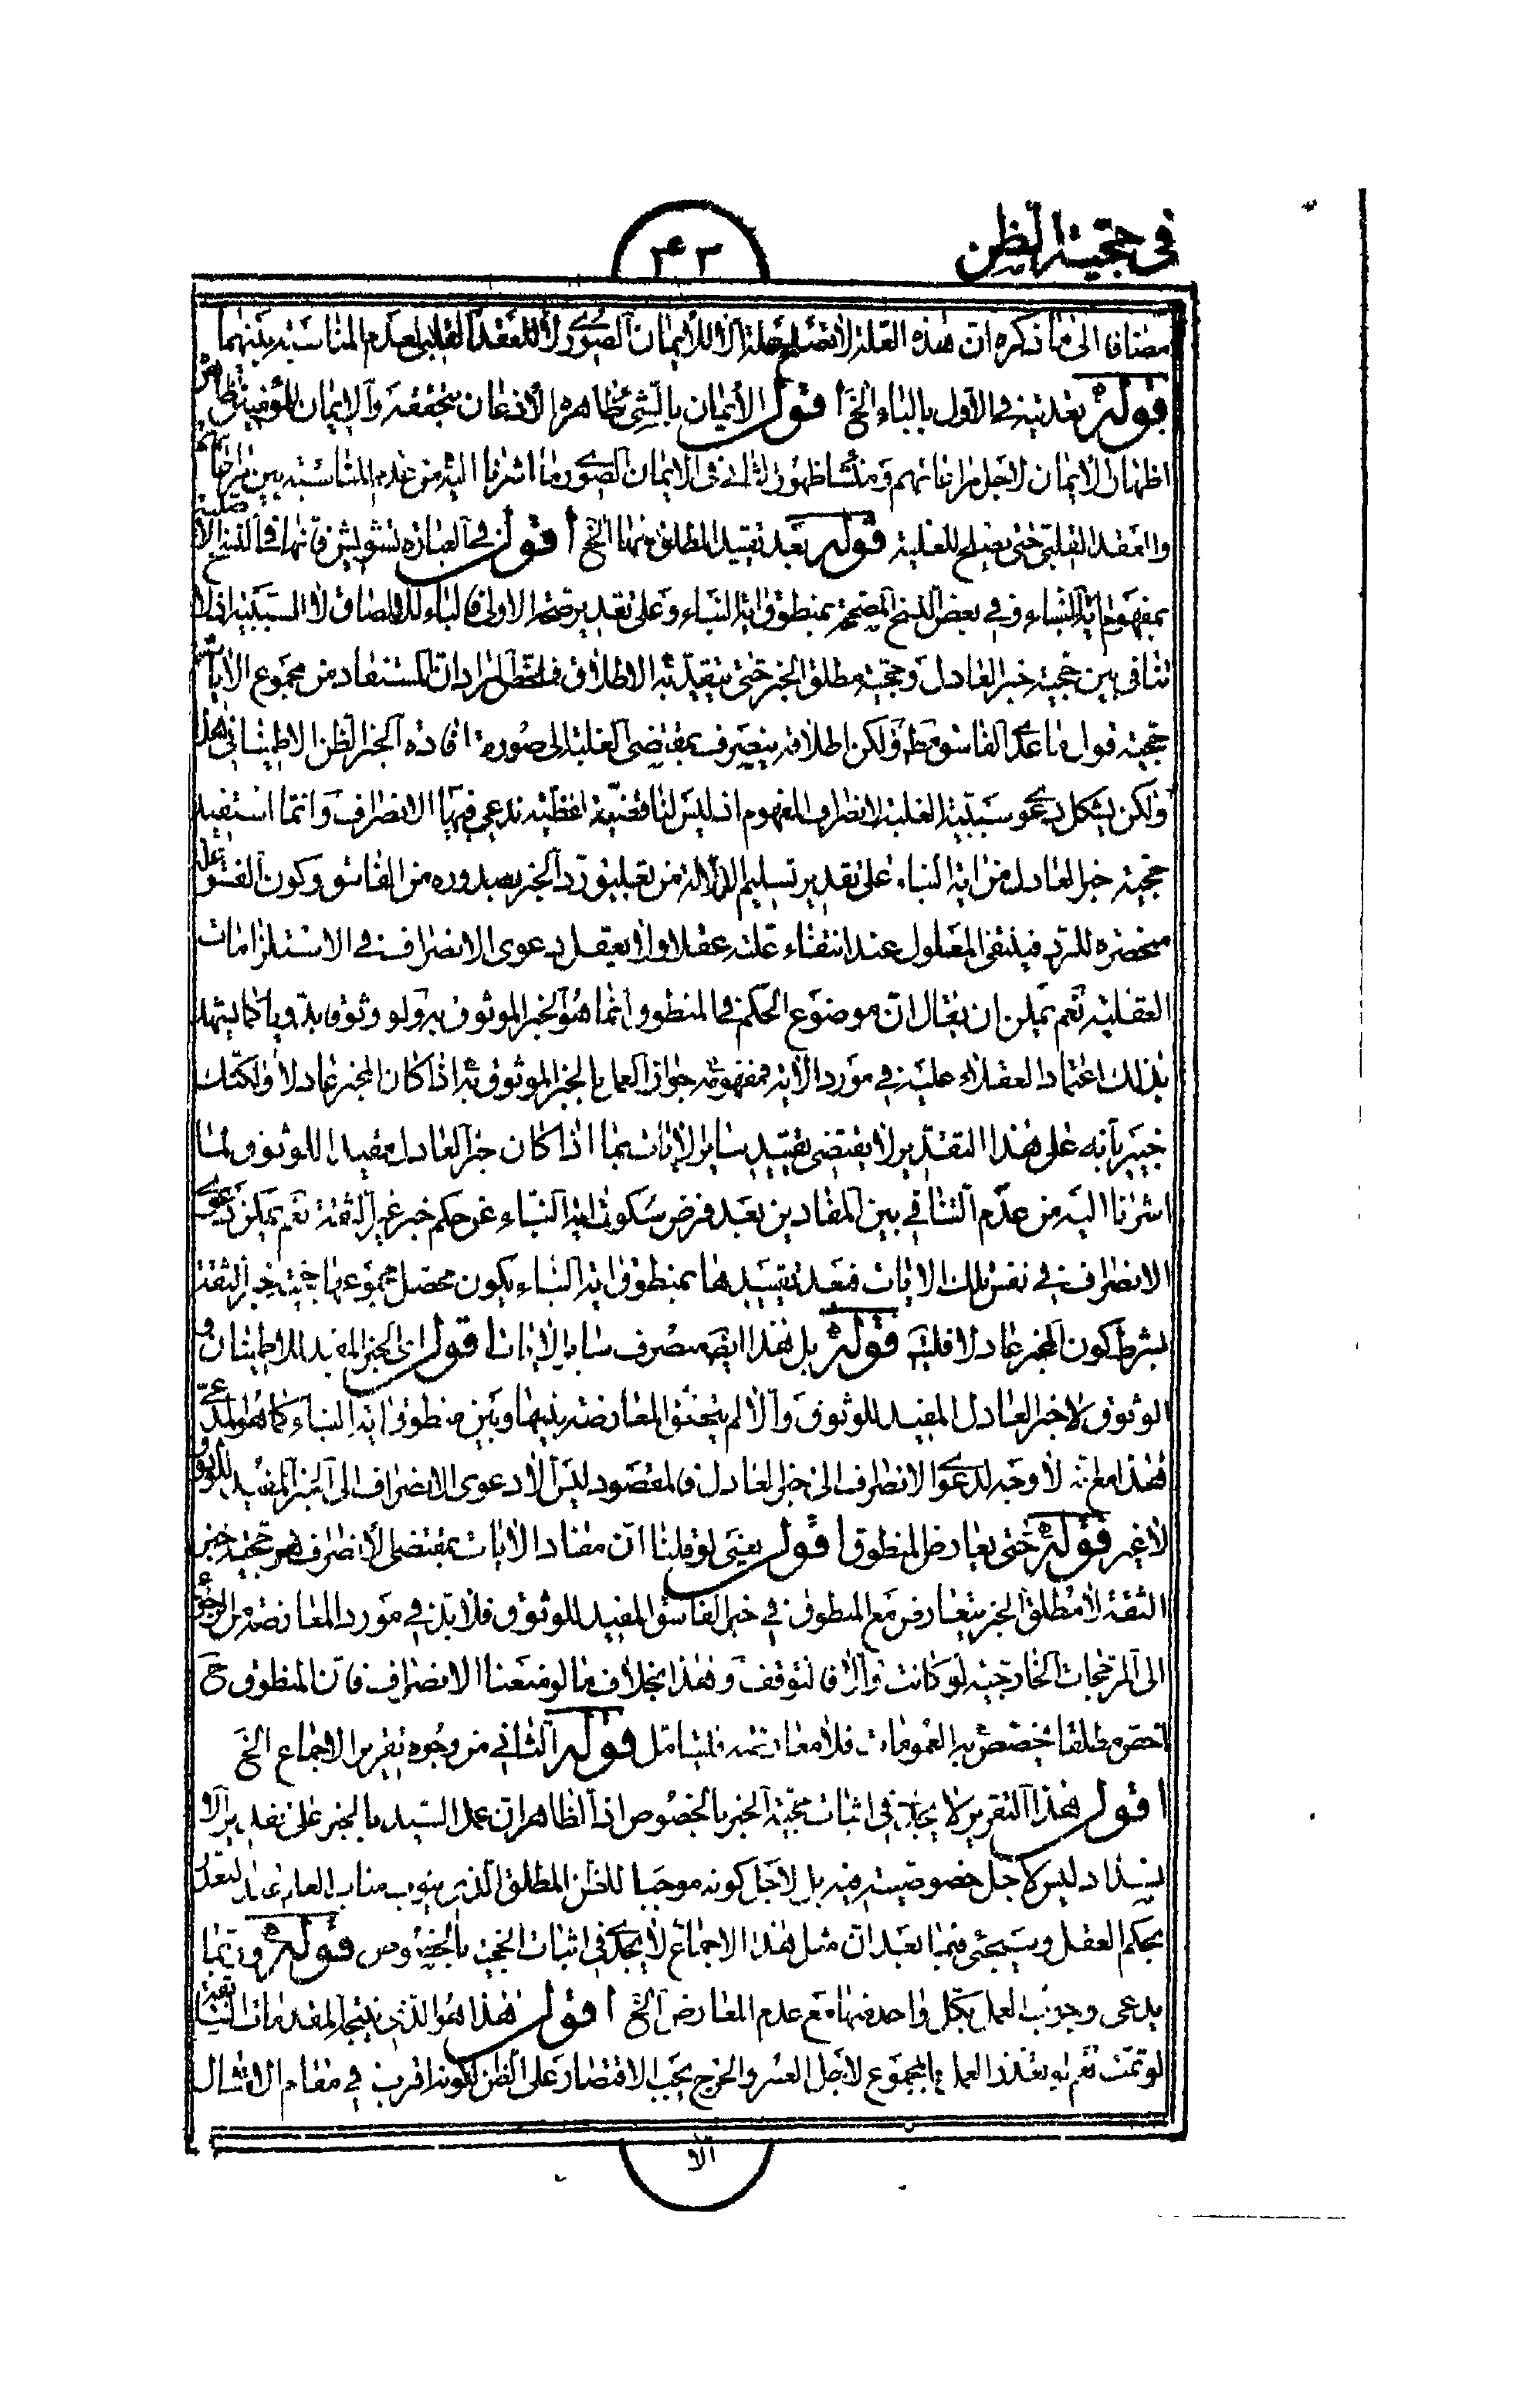 في حجية الظن
۴۳
مضافا الى ما ذكره ان هذه العلة لا تصلح علة الا للايمان الصورى لا للعقد القلبى لعدم المناسبة بينهما
قوله تعديته في الاول بالباء الخ اقول الايمان بالشىء ظاهره الاذعان بتحققه والايمان للمؤمنين ظاهره
اظهار الايمان لاجل مراعاتهم ومنشأ ظهور الثانى في الايمان الصورى ما اشرنا اليه من عدم المناسبة بين مراعاتهم
والعقد القلبى حتى يصلح للعلية قوله بعد تقييد المطلق منها الخ اقول في العبارة تشويش فانها في النسخ الاصلية
بمفهوم اية النباء وفي بعض النسخ المصححة بمنطوق اية النباء وعلى تقدير صحة الاولى فالباء للالصاق لا السببية اذ لا
تنافى بين حجية خبر العادل وحجية مطلق الخبر حتى يتقيد به الاطلاق فلعل المراد ان المستفاد من مجموع الايات
حجية قول ما عدا الفاسق مط ولكن اطلاقه ينصرف بمقتضى الغلبة الى صورة افادة الخبر الظن الاطمينانى هذا
ولكن يشكل دعوى سببية الغلبة لانصراف المفهوم اذ ليس لنا قضية لفظية ندعى فيها الانصراف وانما استفيد
حجية خبر العادل من اية النباء على تقدير تسليم الدلالة من تعليق رد الخبر بصدوره من الفاسق وكون الفسق علة
منحصرة للرد فينتفى المعلول عند انتفاء علته عقلا ولا يعقل دعوى الانصراف في الاستلزامات
العقلية نعم يمكن ان يقال ان موضوع الحكم في المنطوق انما هو الخبر الموثوق به ولو وثوقا بدويا كما يشهد
بذلك اعتماد العقلاء عليه في مورد الاية فمفهومه جواز العمل بالخبر الموثوق به اذا كان المخبر عادلا ولكنك
خبير بانه على هذا التقدير لا يقتضى تقييد ساير الايات بما اذا كان خبر العادل مفيدا للوثوق لما
اشرنا اليه من عدم التنافى بين المفادين بعد فرض سكوت اية النباء عن حكم خبر غير الثقة نعم يمكن دعوى
الانصراف في نفس تلك الايات فبعد تقييدها بمنطوق اية النباء يكون محصل مجموعها حجية خبر الثقة
بشرط كون المخبر عادلا فليتأمل قوله بل هذا ايضا منصرف ساير الايات اقول اى الخبر المفيد للاطمينان و
الوثوق لا خبر العادل المفيد للوثوق والا لم يتحقق المعارضة بينها وبين منطوق اية النباء كما هو المدعى
فهذا مع انه لا وجه لدعوى الانصراف الى خبر العادل فالمقصود ليس الا دعوى الانصراف الى الخبر المفيد للوثوق
لا غير قوله حتى يعارض المنطوق اقول يعنى لو قلنا ان مفاد الايات بمقتضى الانصراف هو حجية خبر
الثقة لا مطلق الخبر يتعارض مع المنطوق في خبر الفاسق المفيد للوثوق فلا بد في مورد المعارضة من الرجوع
الى المرجحات الخارجية لو كانت والا فالتوقف وهذا بخلاف ما لو منعنا الانصراف فان المنطوق ح
اخص مطلقا يخصص به العمومات فلا معارضة فليتامل قوله الثانى من وجوه تقرير الاجماع الخ
اقول هذا التقرير لا يجدى في اثبات حجية الخبر بالخصوص اذ الظاهر ان عمل السيد بالخبر على تقدير الا
نسداد ليس لاجل خصوصية فيه بل لاجل كونه موجبا للظن المطلق الذى ينوب مناب العلم عند تعذره
بحكم العقل وسيجئ فيما بعد ان مثل هذا الاجماع لا يجدى في اثبات الحجية بالخصوص قوله وربما
يدعى وجوب العمل بكل واحد منها مع عدم المعارض الخ اقول هذا هو الذى ينتجه المقدمات السابقة
لو تمت نعم لو تعذر العمل بالمجموع لاجل العسر والحرج يجب الاقتصار على الظن لكونه اقرب في مقام الامتثال
الا